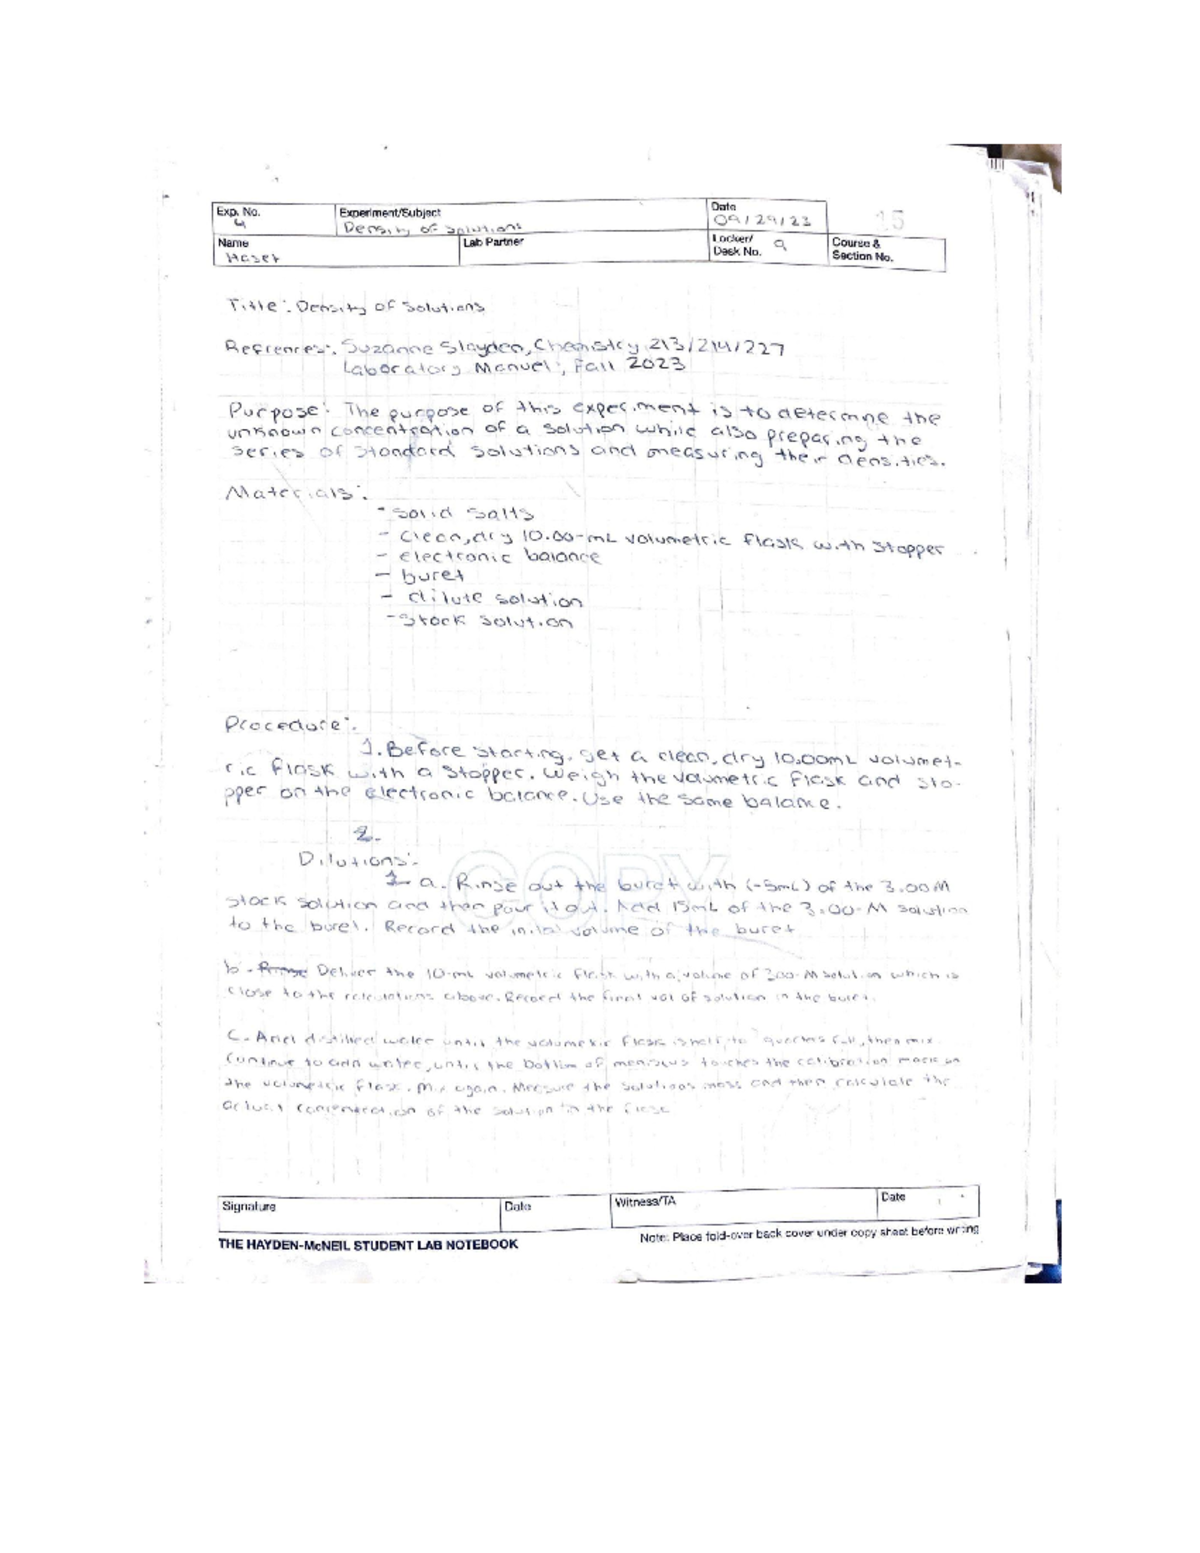 Exp. No. 4
Experiment/Subject
Density of Solutions
Date
09/29/23
15
Name
Lab Partner
Locker/
Desk No. 9
Course &
Section No.
Title: Density of Solutions
Refrences: Suzanne Slayden, Chemistry 213/214/227
Laboratory Manuel, Fall 2023
Purpose: The purpose of this experiment is to determine the
unknown concentration of a solution while also preparing the
series of standard solutions and measuring their densities.
Materials:
- Solid Salts
- clean, dry 10.00-mL volumetric flask with stopper
- electronic balance
- buret
- dilute solution
- Stock solution
Procedure:
1. Before starting, get a clean, dry 10.00mL volumet-
ric flask with a stopper. Weigh the volumetric flask and sto-
pper on the electronic balance. Use the same balance.
2.
Dilutions:
a. Rinse out the buret with (~5mL) of the 3.00M
stock solution and then pour it out. Add 15mL of the 3.00-M solution
to the buret. Record the inital volume of the buret
b. Deliver the 10-mL volumetric flask with a volume of 3.00-M solution which is
close to the calculations above. Record the final vol of solution in the buret.
C. Add distilled water until the volumetric flask is half to quarters full, then mix.
Continue to add water, until the bottom of meniscus touches the calibration mark on
the volumetric flask. Mix again. Measure the solutions mass and then calculate the
actual concentration of the solution in the flask
COPY
Signature
Date
Witness/TA
Date
THE HAYDEN-McNEIL STUDENT LAB NOTEBOOK
Note: Place fold-over back cover under copy sheet before writing